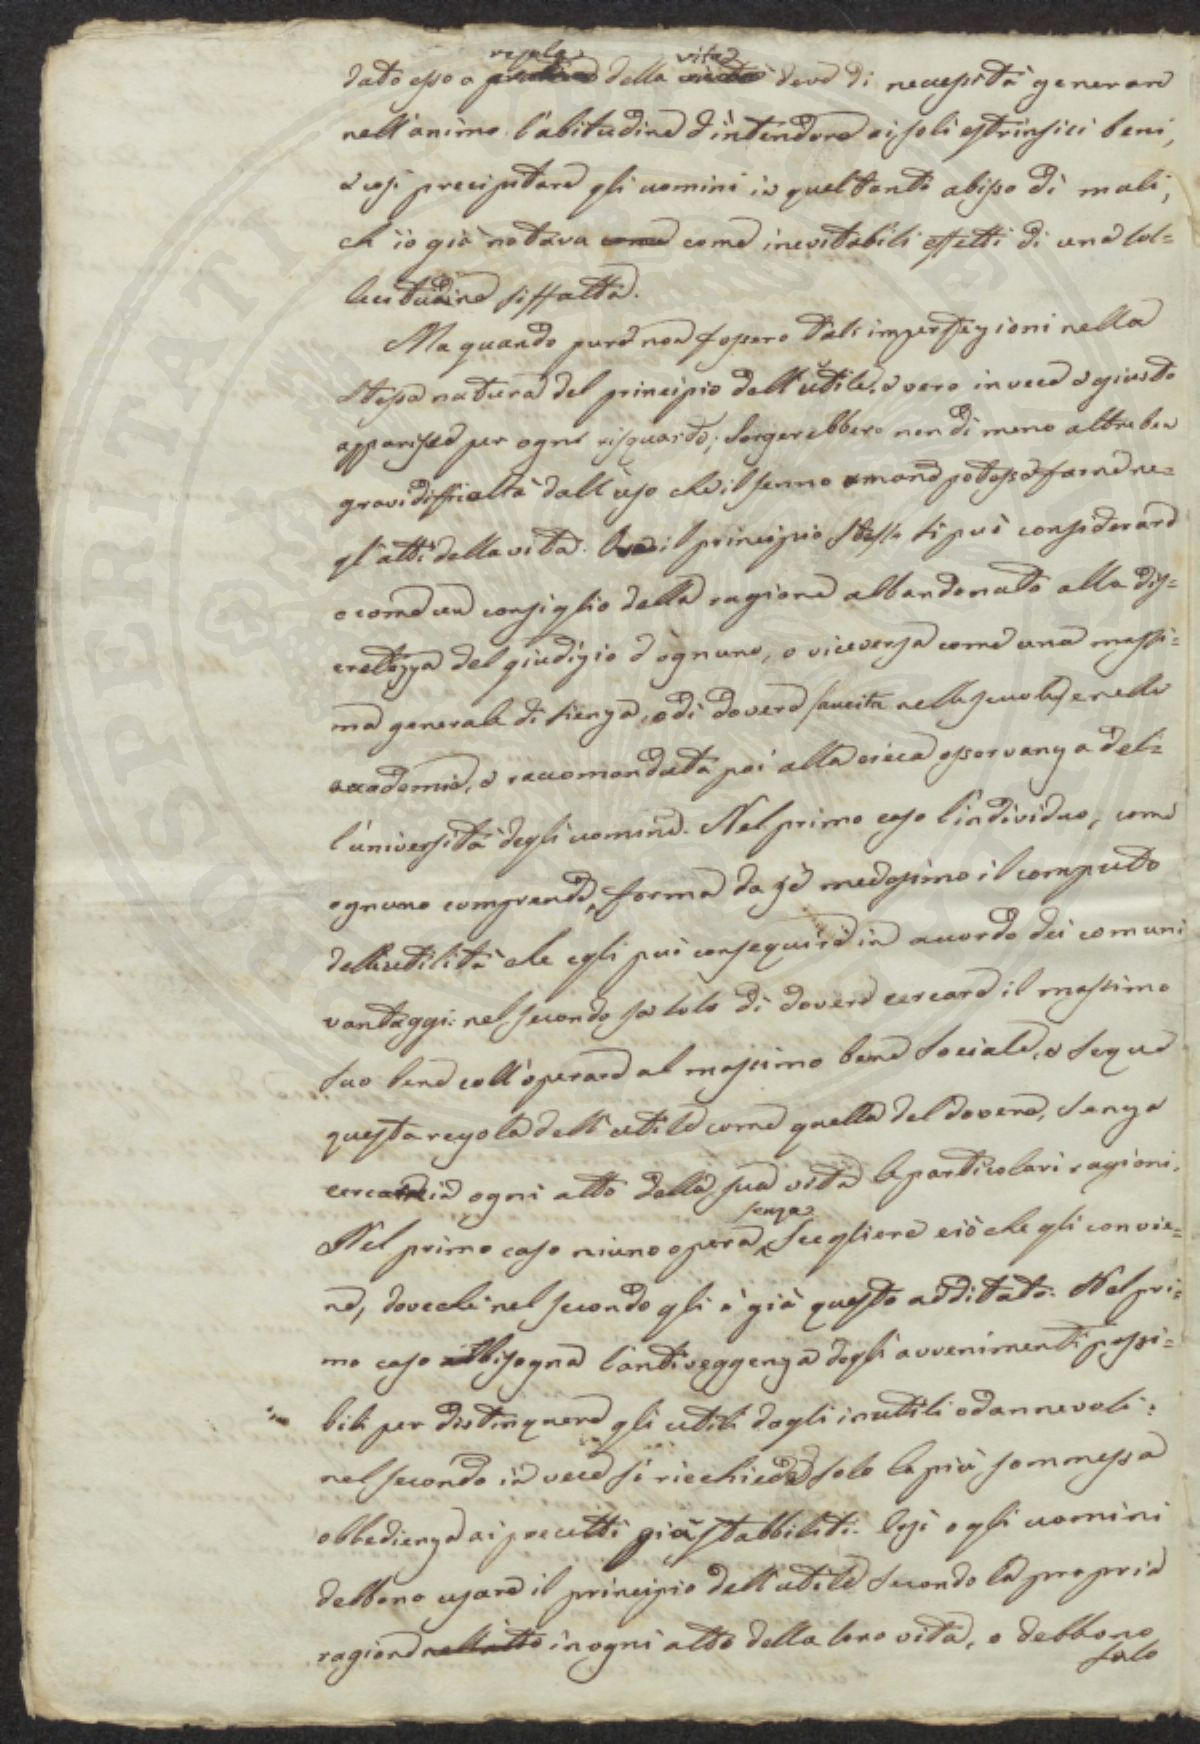 dato esso a regola della vita deve di necessità generare
nell'animo l'abitudine d'intendere ai soli estrinsici beni,
e così precipitare gli uomini in quel tanto abisso di mali,
ch'io già notava come come inevitabili effetti di una sol=
lecitudine siffatta.
Ma quando pure non fossero tali imperfezioni nella
stessa natura del principio dell'utile, e vero in vece e giusto
apparisse per ogni risguardo; sorgerebbero non di meno altre ben
gravi difficoltà dall'uso che il senno umano potesse farne ne=
gl'atti della vita. il principio stesso si può considerare
o come un consiglio della ragione abbandonato alla dis=
cretezza del giudizio d'ognuno, o viceversa come una massi=
ma generale di scienza, o di dovere sancita nelle scuole, e nelle
accademie, e raccomandata poi alla cieca osservanza del=
l'università degli uomini. Nel primo caso l'individuo, come
ognuno comprende, forma da sè medesimo il computo
dell'utilità che egli può conseguire in accordo dei comuni
vantaggi: nel secondo sa solo di dovere cercare il massimo
suo bene coll'operare al massimo bene sociale, e segue
questa regola dell'utile come quella del dovere, senza
cercare in ogni atto della sua vita le particolari ragioni.
Nel primo caso niuno opera senza scegliere ciò che gli convie=
ne, dovechè nel secondo gli è già questo additato. Nel pri=
mo caso abbisogna l'antiveggenza degli avvenimenti possi=
bili per distinguere gli utili dagli inutili o dannevoli:
nel secondo in vece si richiede solo la più sommessa
obbedienza ai precetti già stabbiliti. Così o gli uomini
debbono usare il principio dell'utile secondo la propria
ragione nell'atto in ogni atto della loro vita, o debbono
solo